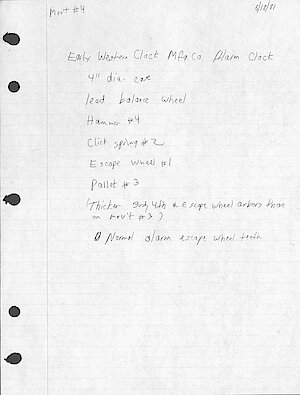 Mov't #4
5/18/81
Early Western Clock Mfg Co Alarm Clock
4" dia. case
lead balance wheel
Hammer #4
Click spring #2
Escape wheel #1
Pallet #3
(Thicker 3rd, 4th & Escape wheel arbors than
on mov't #3)
Normal alarm escape wheel teeth